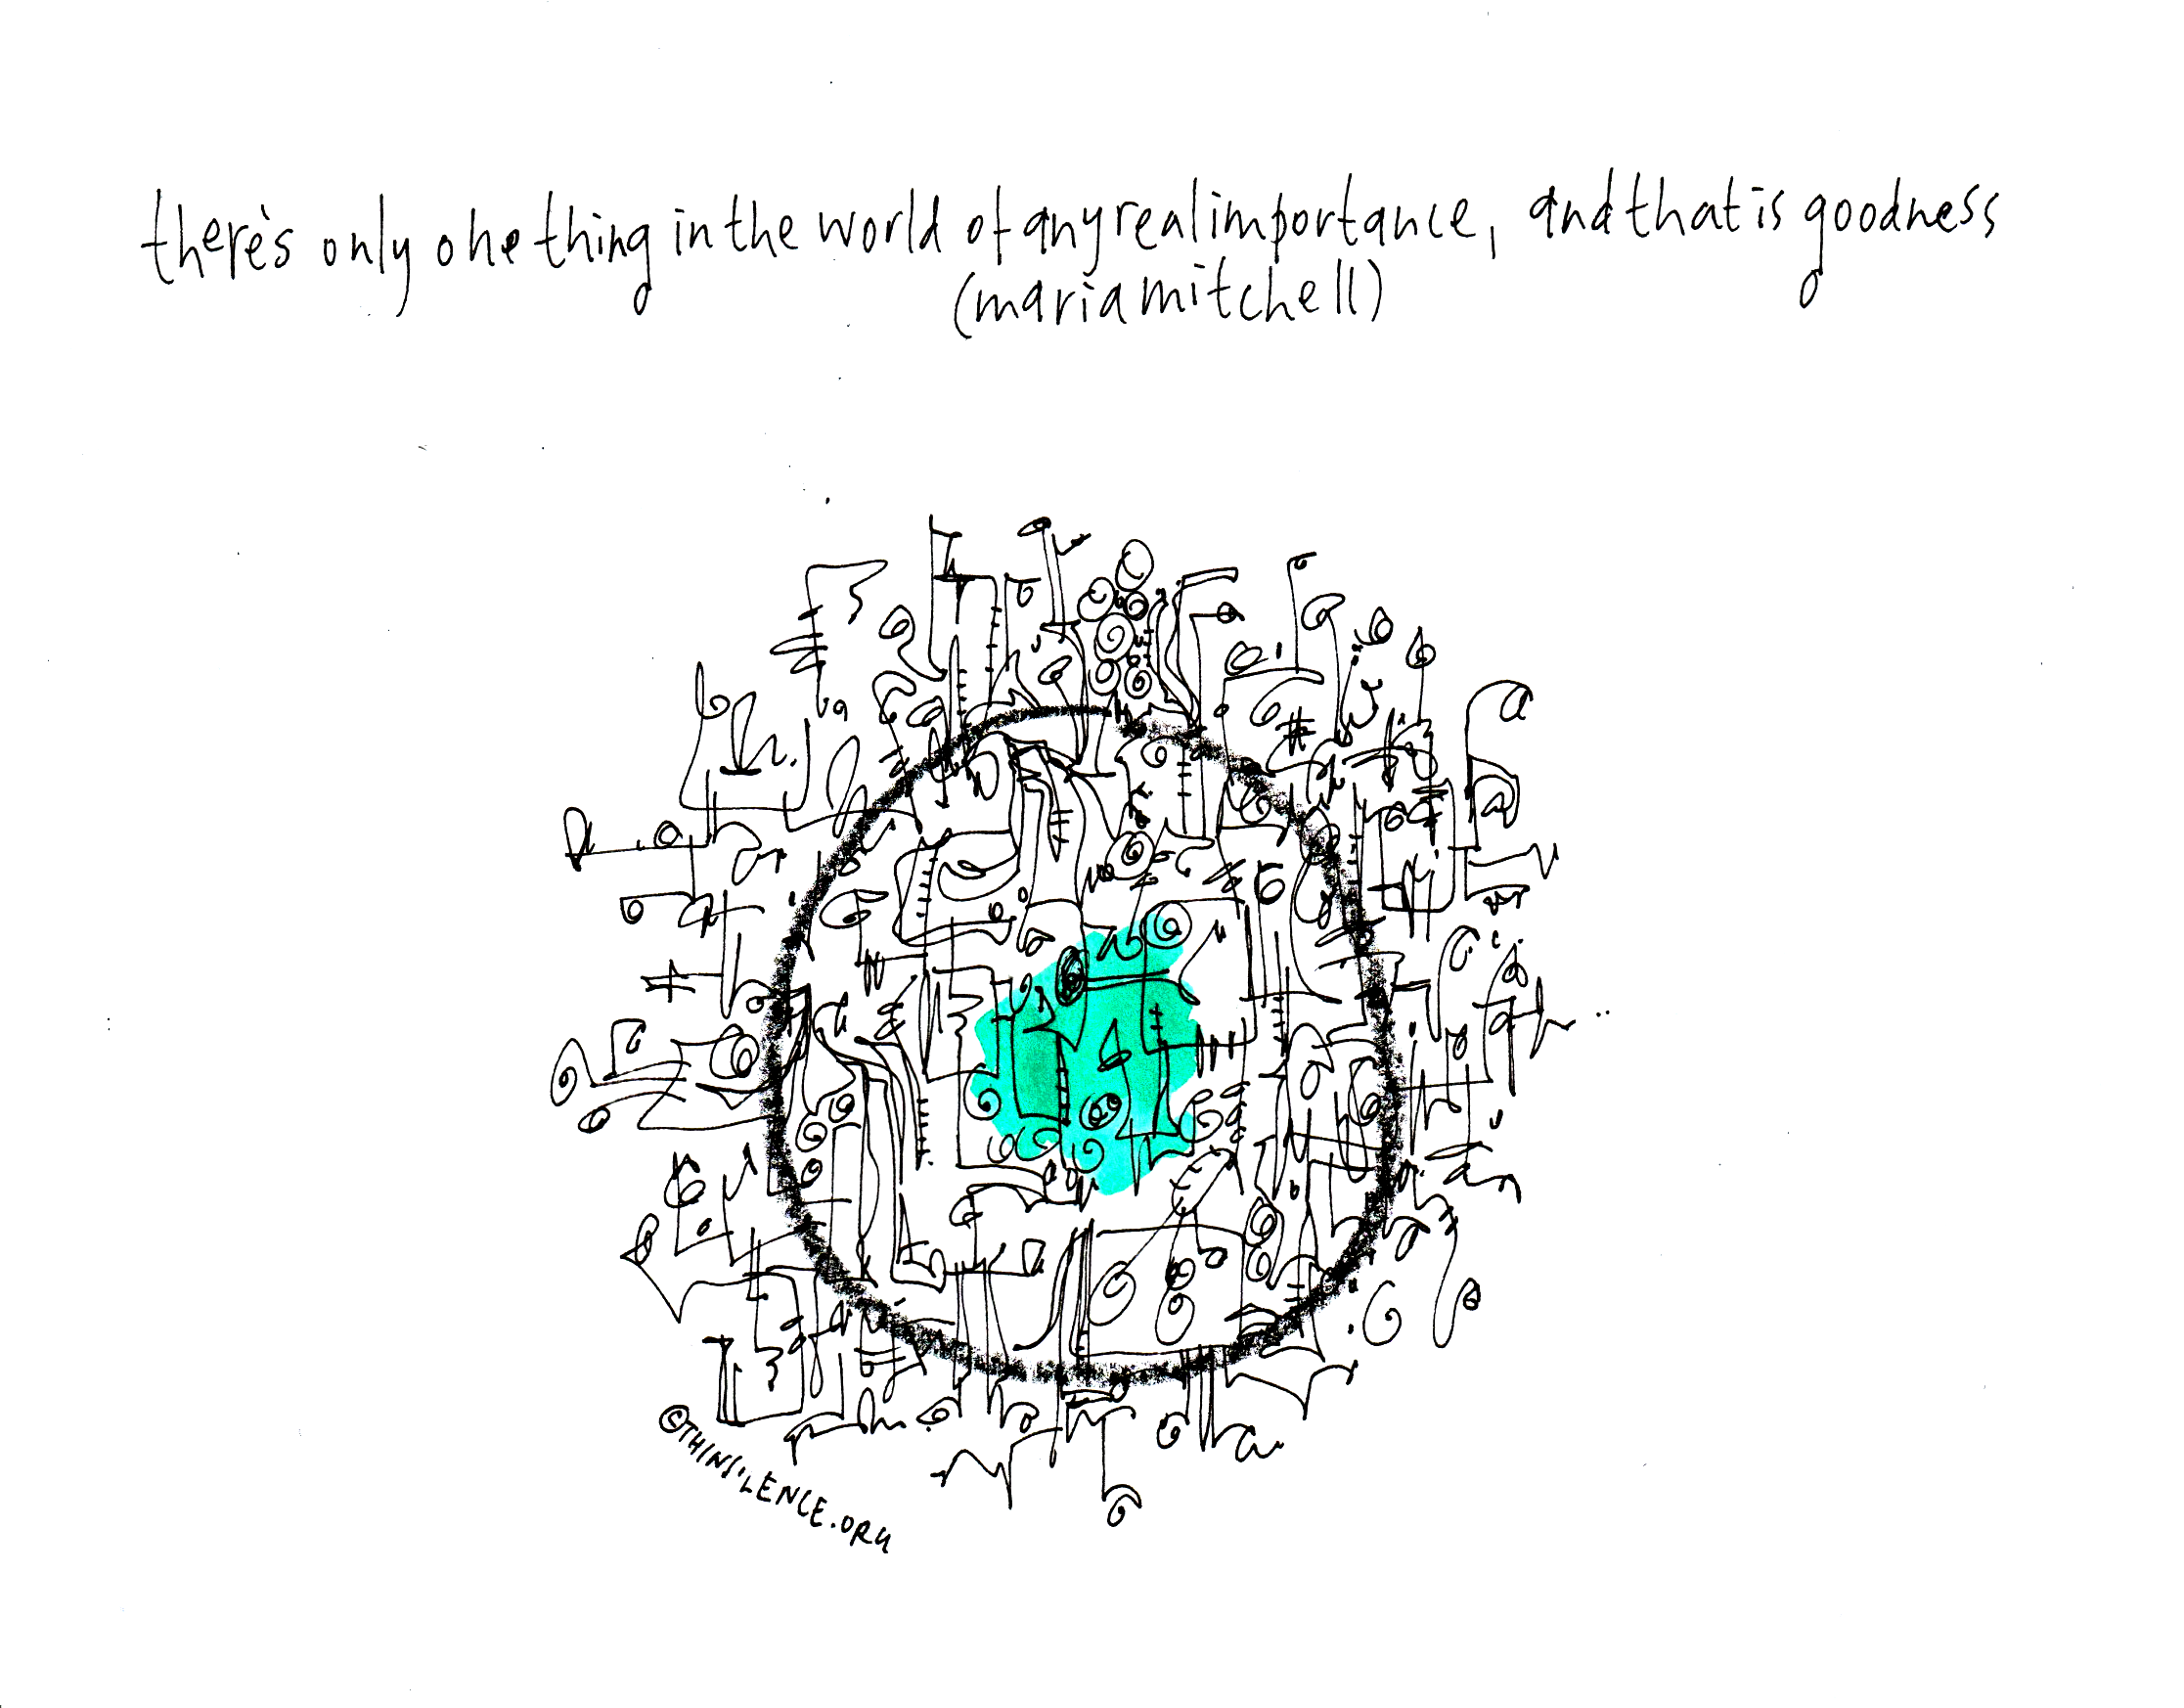 there's only one thing in the world of any real importance, and that is goodness
(maria mitchell)
©THINSILENCE.ORG